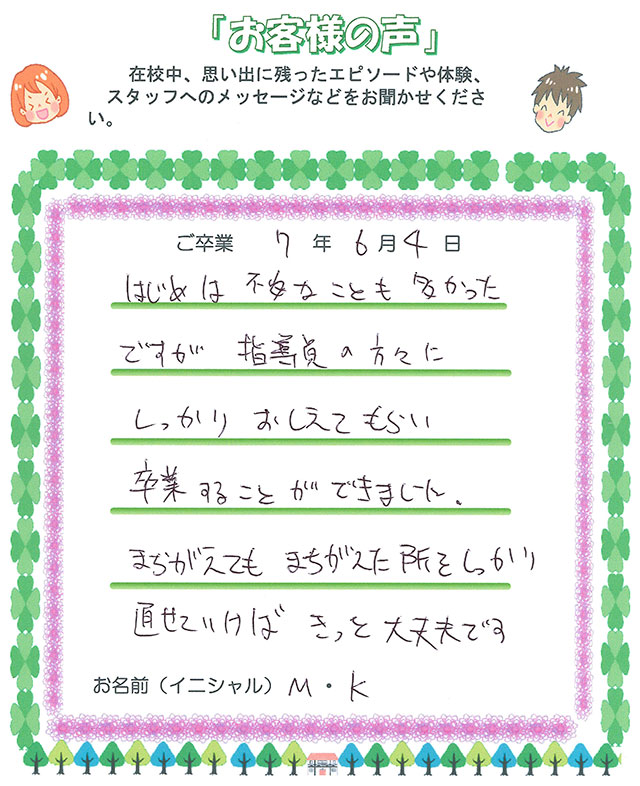 「お客様の声」
在校中、思い出に残ったエピソードや体験、
スタッフへのメッセージなどをお聞かせくださ
い。
ご卒業 7 年 6 月 4 日
はじめは 不安なことも 多かった
ですが 指導員の方々に
しっかり おしえてもらい
卒業することができました。
まちがえても まちがえた所をしっかり
直せていければ きっと大丈夫です
お名前（イニシャル） M・K